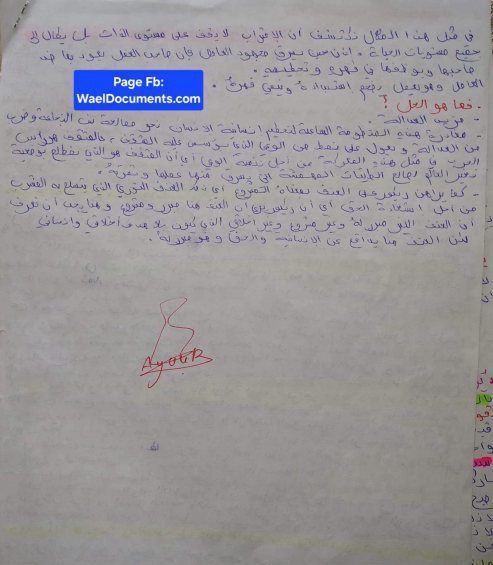 في مثل هذا المثال نكتشف أن الاغتراب لا يقف على مستوى الذات بل يطال إلى
جميع مستويات الحياة. لأن حين يسرق مجهود العامل فإن صاحب العمل يعود بها ضد
صاحبها ويوظفها في قهره وتحطيمه.
العامل وهو يعمل يصنع استبداده ويبني قهره.
Page Fb:
WaelDocuments.com
- فما هو الحل؟
- حزب العدالة.
- مغادرة هذه المنظومة الصانعة لتحطيم إنسانية الإنسان نحو مصالحة بين
من العدالة ونعول على نمط من الوعي الذي يؤسس عليه المثقف، فالمثقف هو رأس
الحرب في مثل هذه المعركة من أجل تنمية الوعي أي أن المثقف هو الذي يضطلع بوضعية
تغيير العالم لصالح الطبقات المهمشة التي يسرق منها عملها
- كما يراهن ريكور على العنف بمعناه المشروع أي ذلك العنف الثوري الذي يتسلح به الشعوب
من أجل استعادة الحق أي أن ريكور يرى أن العنف هنا مبرر ومشروع وهنا يجب أن نعرف
أن العنف الليس مبررا له وغير مشروع وغير أخلاقي الذي يكون بلا هدف أخلاقي وإنساني
لكن العنف هنا يدافع عن الإنسانية والحق وهو مبرر له.
AyouB